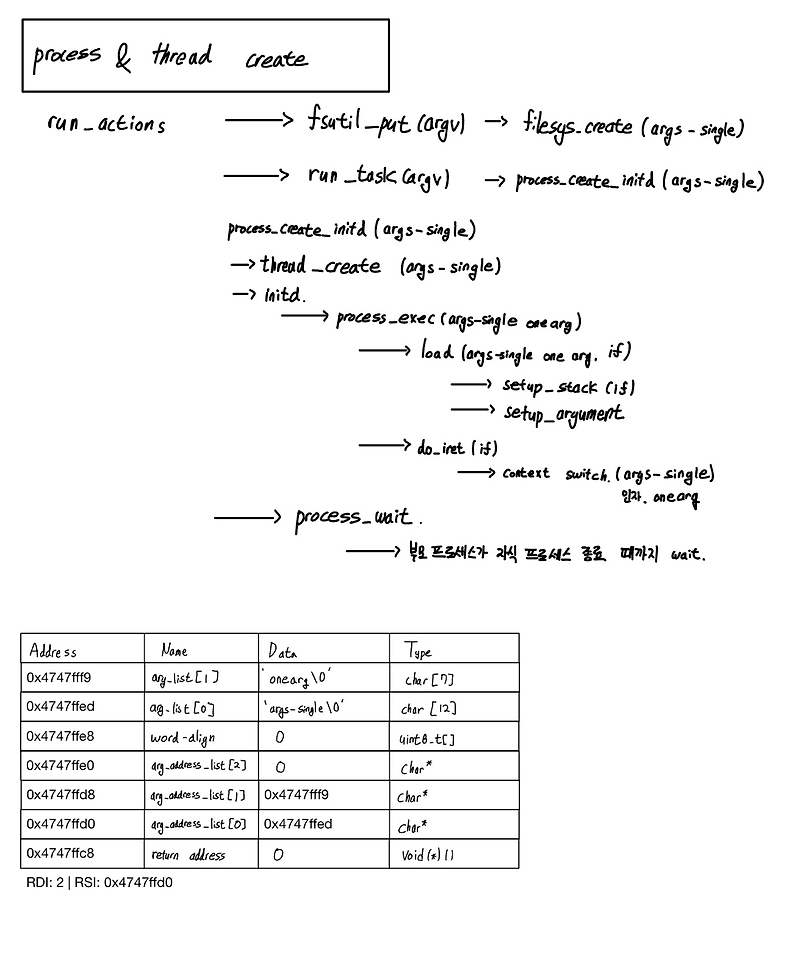 process & thread create
run_actions → fsutil_put (argv) → filesys_create (args-single)
→ run_task (argv) → process_create_initd (args-single)
process_create_initd (args-single)
→ thread_create (args-single)
→ initd.
→ process_exec (args-single onearg)
→ load (args-single one arg. if)
→ setup_stack (if)
→ setup_argument
→ do_iret (if)
→ context switch. (args-single)
인자. onearg
→ process_wait.
→ 부모 프로세스가 자식 프로세스 종료 때까지 wait.
Address Name Data Type
0x4747fff9 arg_list[1] 'onearg\0' char[7]
0x4747ffed arg_list[0] 'args-single\0' char[12]
0x4747ffe8 word-align 0 uint8_t[]
0x4747ffe0 arg_address_list[2] 0 char*
0x4747ffd8 arg_address_list[1] 0x4747fff9 char*
0x4747ffd0 arg_address_list[0] 0x4747ffed char*
0x4747ffc8 return address 0 void(*)()
RDI: 2 | RSI: 0x4747ffd0